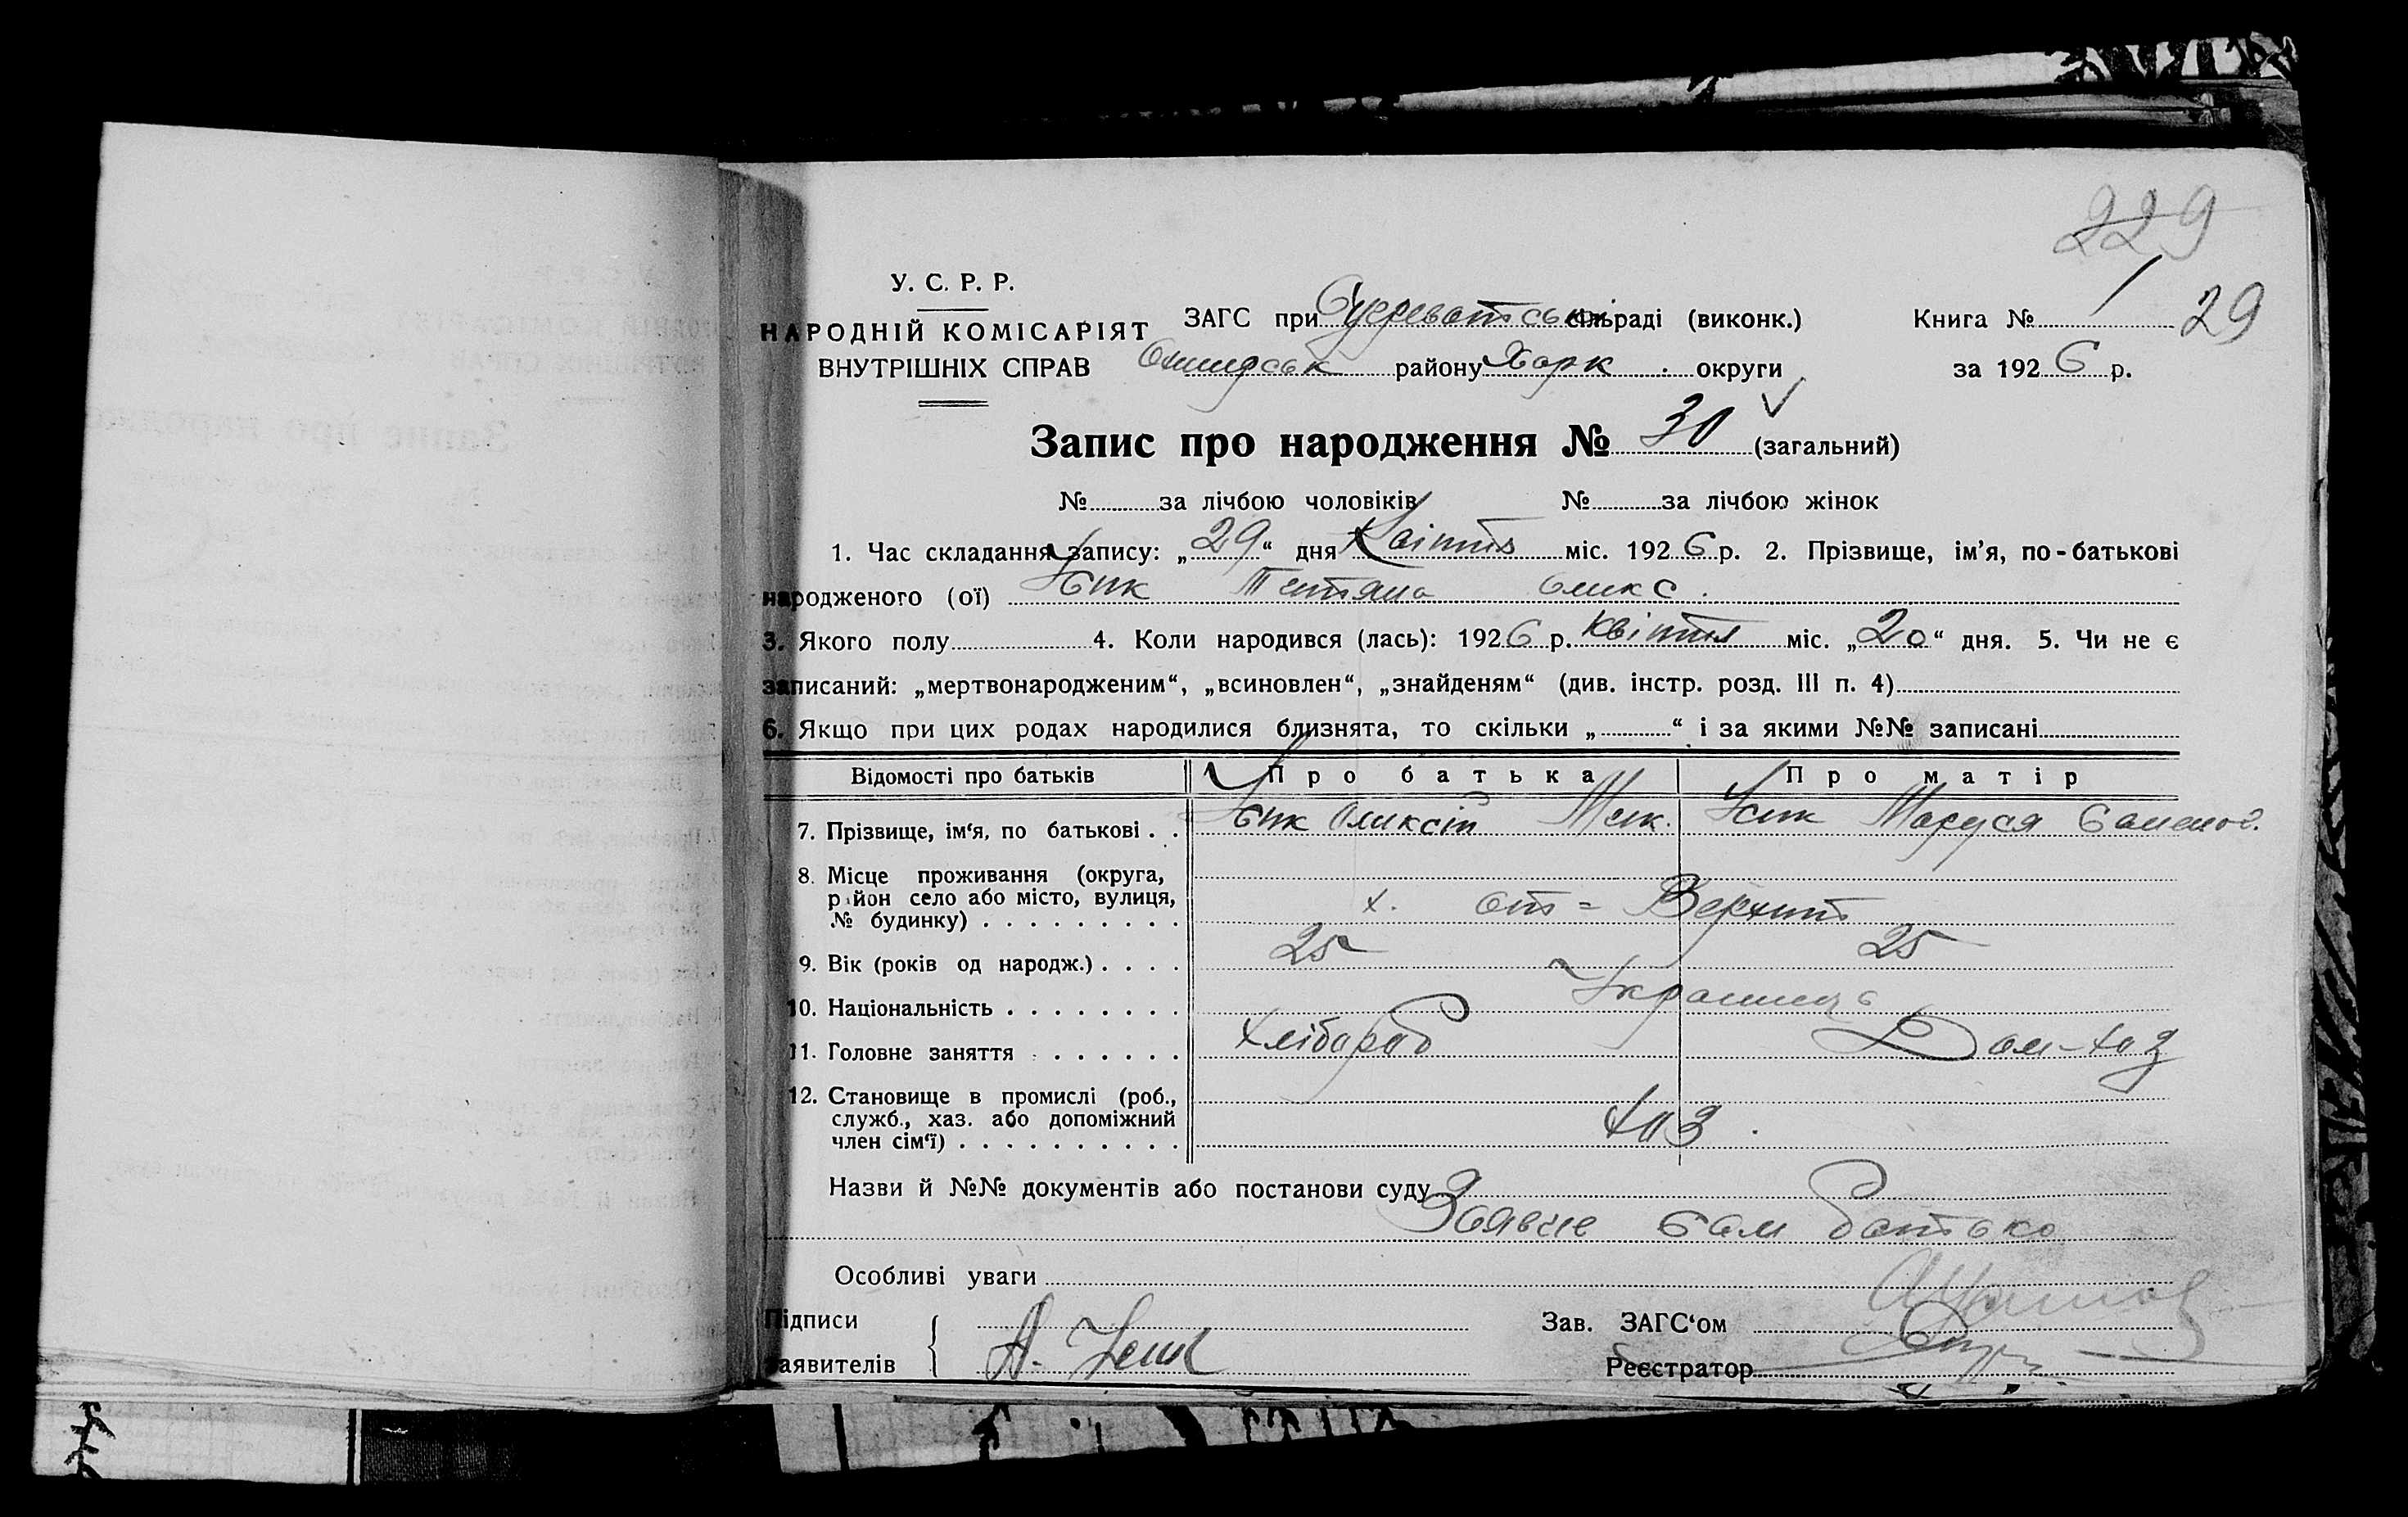 229
У. С. Р. Р.
НАРОДНІЙ КОМІСАРІЯТ
ВНУТРІШНІХ СПРАВ
ЗАГС при сільраді (виконк.)
району Харк. округи
Книга № 1 29
за 1926 р.
Запис про народження № 30 (загальний)
№ за лічбою чоловіків № за лічбою жінок
1. Час складання запису: „29“ дня Квітня міс. 1926 р. 2. Прізвище, ім’я, по-батькові
народженого (ої) Тетяна Оликс.
3. Якого полу 4. Коли народився (лась): 1926 р. Квітня міс. „20“ дня. 5. Чи не є
записаний: „мертвонародженим“, „всиновлен“, „знайденям“ (див. інстр. розд. III п. 4)
6. Якщо при цих родах народилися близнята, то скільки „ “ і за якими №№ записані
Відомості про батьків Про батька Про матір
7. Прізвище, ім‘я, по батькові . . Оликсій Маруся
8. Місце проживання (округа,
район село або місто, вулиця,
№ будинку) . . . . . . . . . х.
9. Вік (років од народж.) . . . . 25 25
10. Національність . . . . . . . .
11. Головне заняття . . . . . . . Хлібороб Дом-хоз
12. Становище в промислі (роб.,
служб., хаз. або допоміжний
член сім‘ї) . . . . . . . . . . хоз.
Назви й №№ документів або постанови суду
сам батько
Особливі уваги
Підписи
заявителів А.
Зав. ЗАГС‘ом
Реєстратор